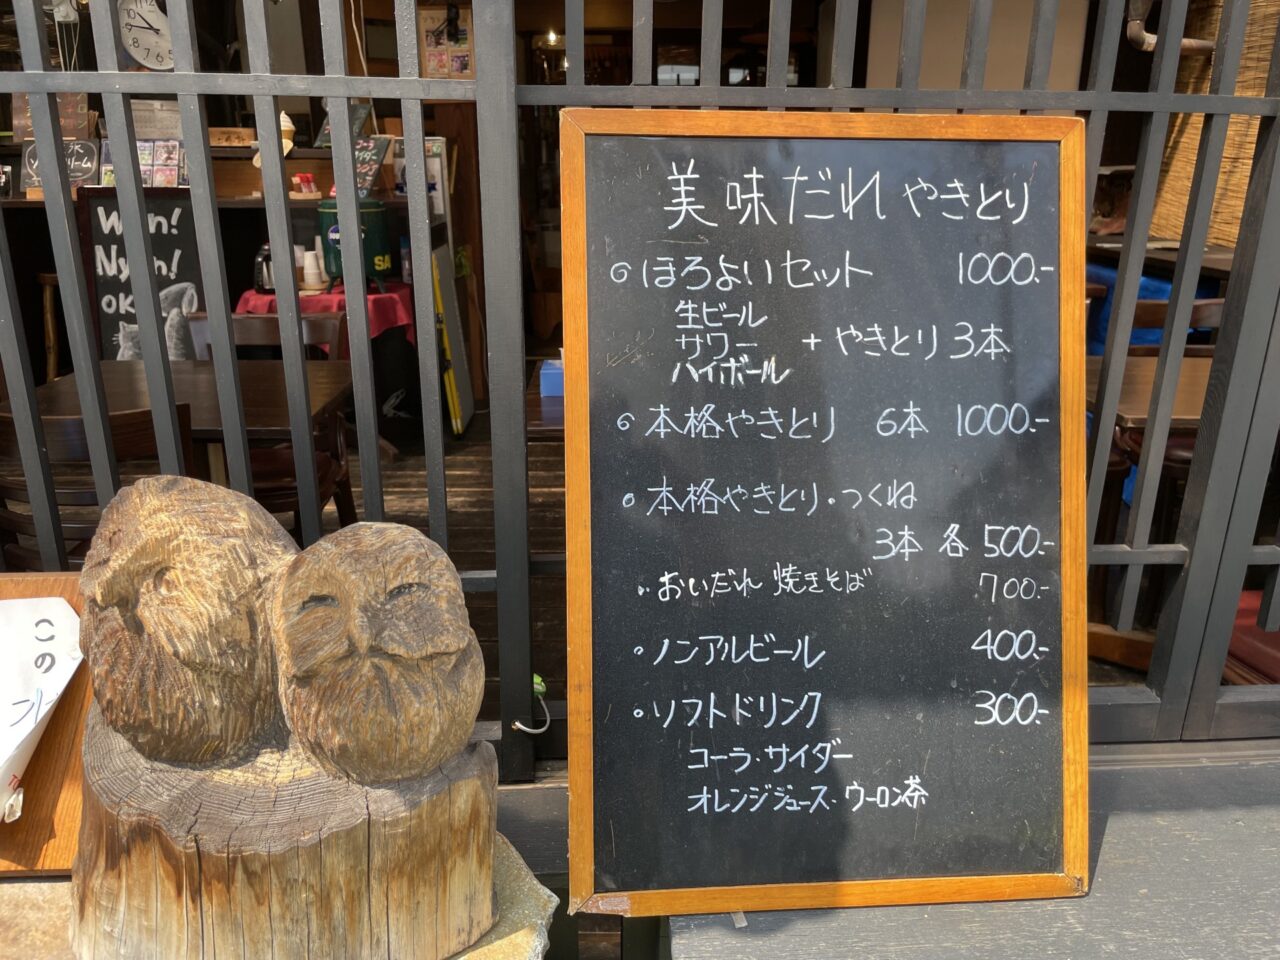 美味だれ やきとり
ほろよいセット 1000.-
生ビール
サワー + やきとり 3本
ハイボール
本格やきとり 6本 1000.-
本格やきとり・つくね
3本 各 500.-
おいだれ 焼きそば 700.-
ノンアルビール 400.-
ソフトドリンク 300.-
コーラ・サイダー
オレンジジュース・ウーロン茶
Wan!
Nyan!
OK
この